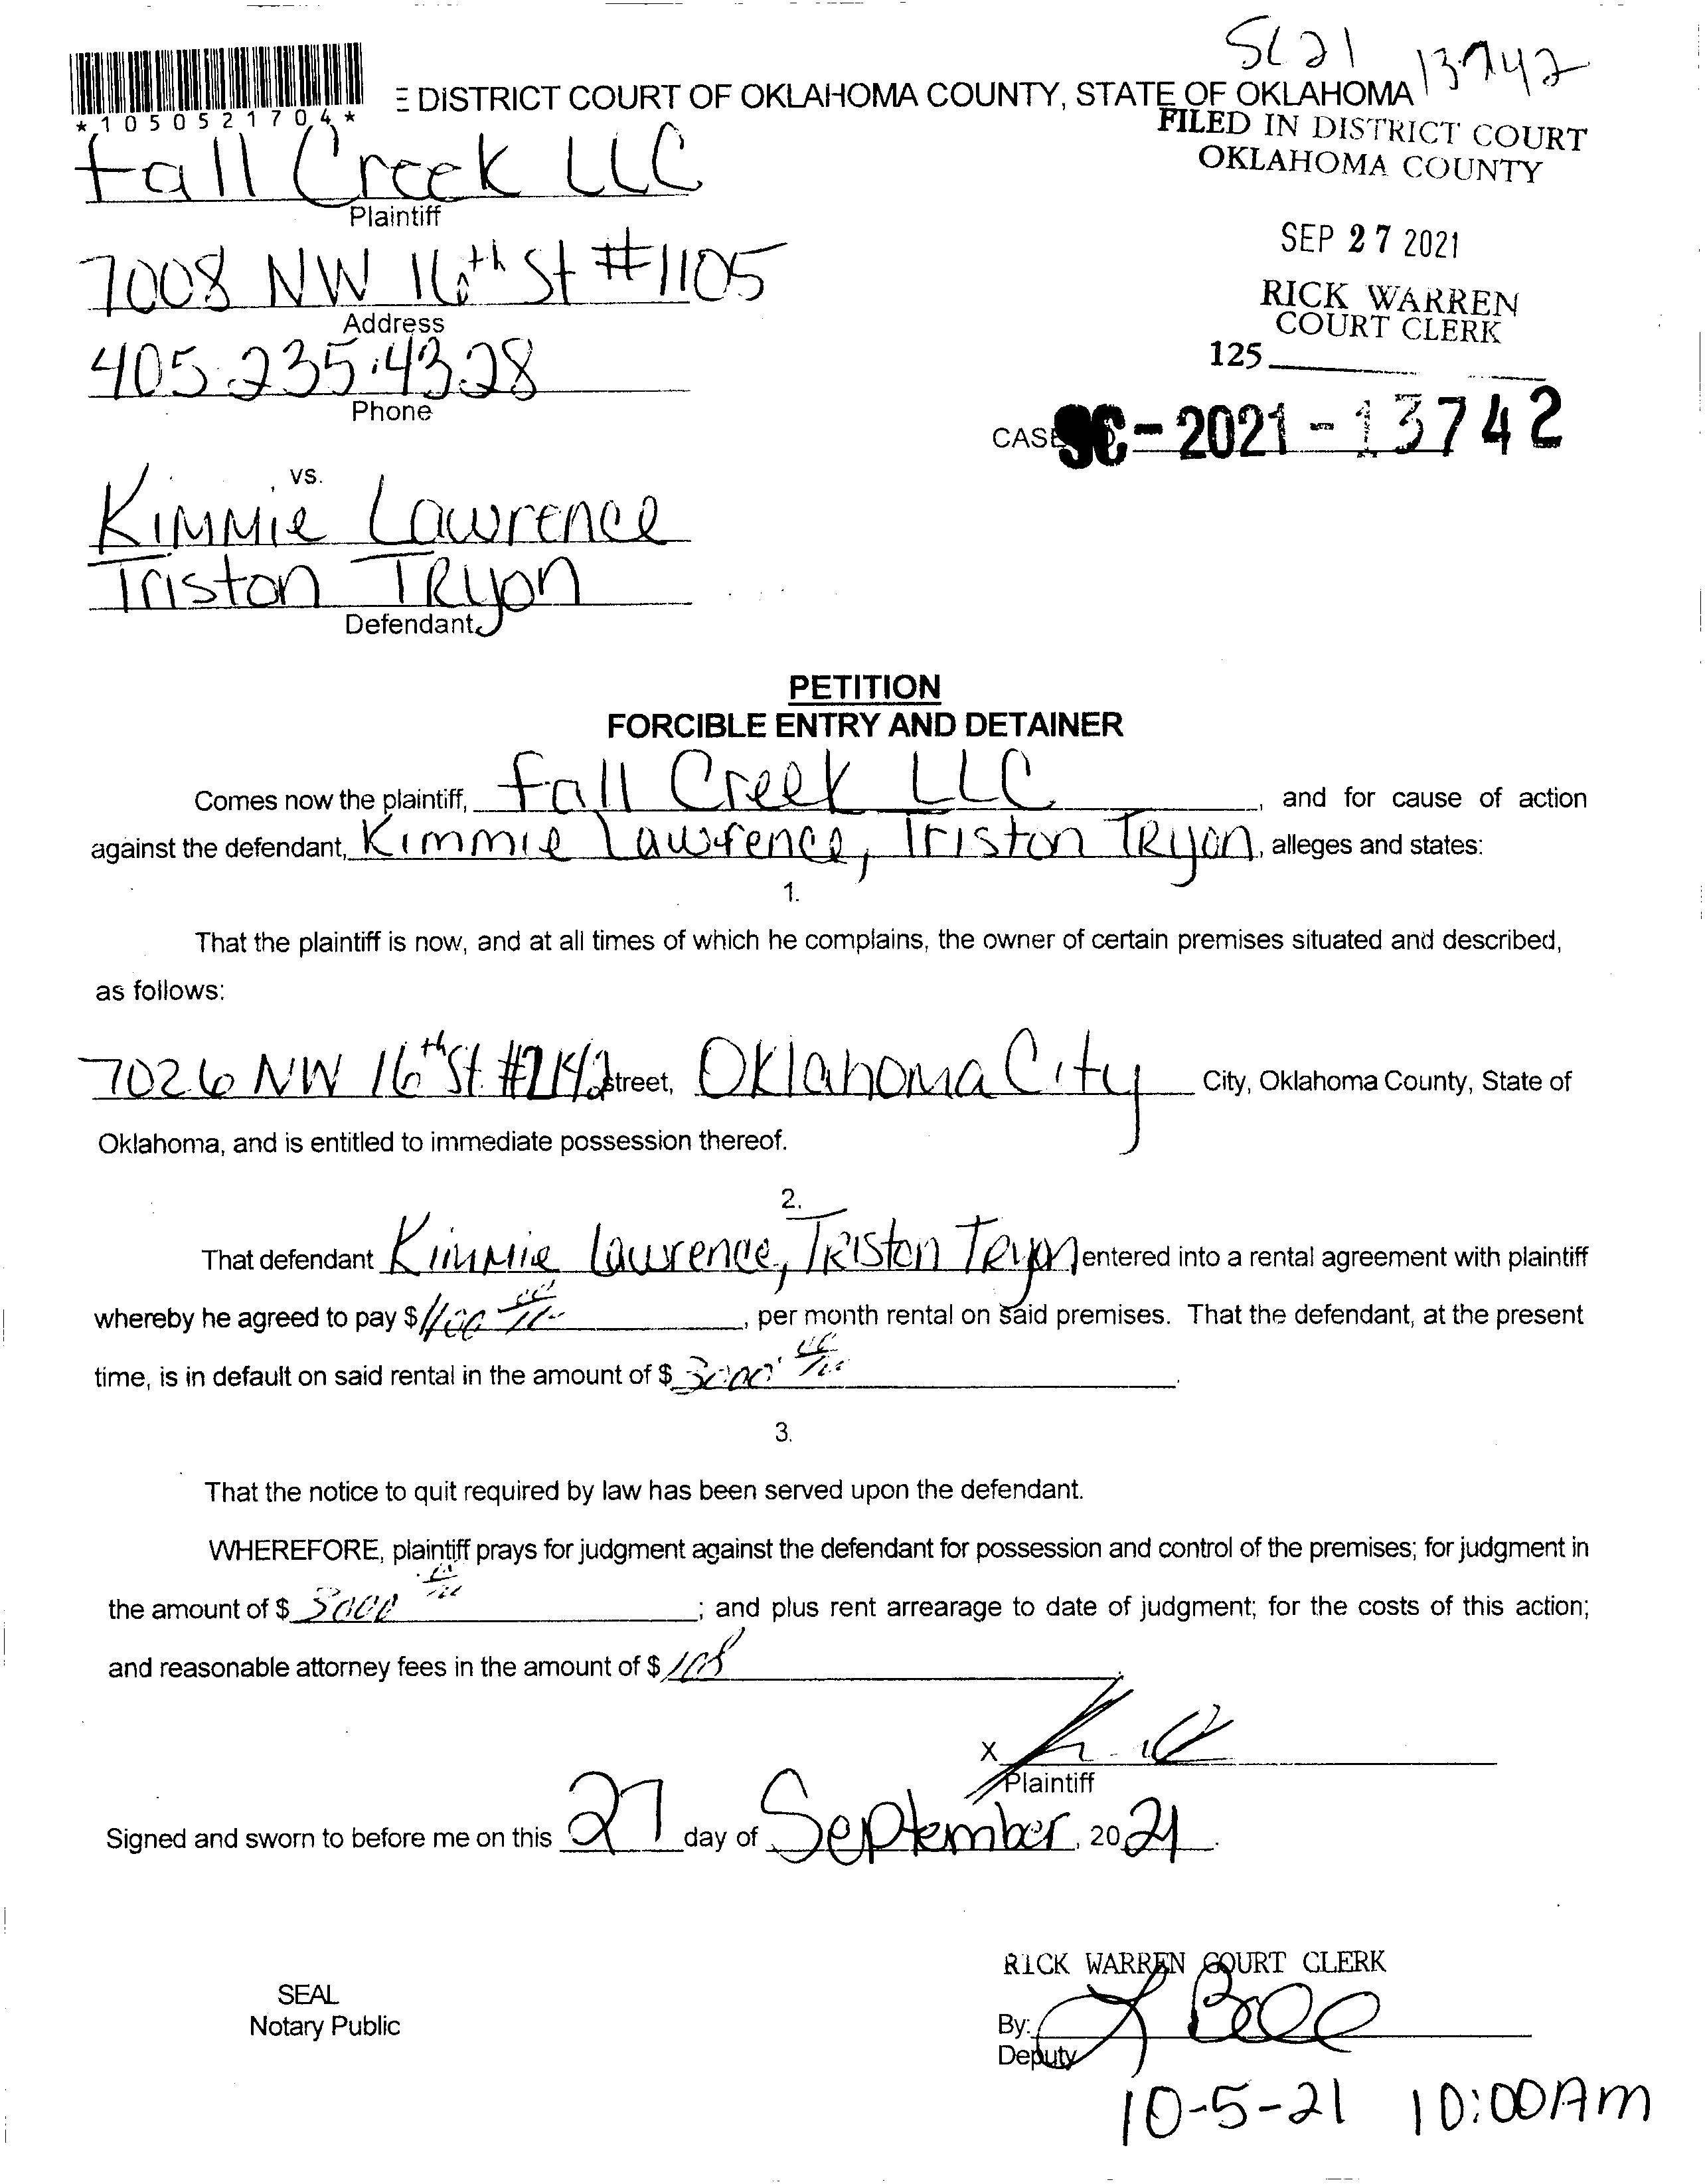 SC21 13742
*1050521704*
E DISTRICT COURT OF OKLAHOMA COUNTY, STATE OF OKLAHOMA
FILED IN DISTRICT COURT
OKLAHOMA COUNTY
Fall Creek LLC
Plaintiff
SEP 27 2021
7008 NW 16th St #1105
Address
RICK WARREN
COURT CLERK
125
405.235.4328
Phone
CASE SC-2021-13742
vs.
Kimmie Lawrence
Triston Tryon
Defendant
PETITION
FORCIBLE ENTRY AND DETAINER
Comes now the plaintiff, Fall Creek LLC, and for cause of action
against the defendant, Kimmie Lawrence, Triston Tryon, alleges and states:
1.
That the plaintiff is now, and at all times of which he complains, the owner of certain premises situated and described,
as follows:
7026 NW 16th St. Street, Oklahoma City City, Oklahoma County, State of
Oklahoma, and is entitled to immediate possession thereof.
2.
That defendant Kimmie Lawrence, Triston Tryon entered into a rental agreement with plaintiff
whereby he agreed to pay $, per month rental on said premises. That the defendant, at the present
time, is in default on said rental in the amount of $ 3000
3.
That the notice to quit required by law has been served upon the defendant.
WHEREFORE, plaintiff prays for judgment against the defendant for possession and control of the premises; for judgment in
the amount of $ 3000; and plus rent arrearage to date of judgment; for the costs of this action;
and reasonable attorney fees in the amount of $
X
Plaintiff
Signed and sworn to before me on this 27 day of September, 2021.
RICK WARREN COURT CLERK
SEAL
Notary Public
By:
Deputy
10-5-21 10:00Am